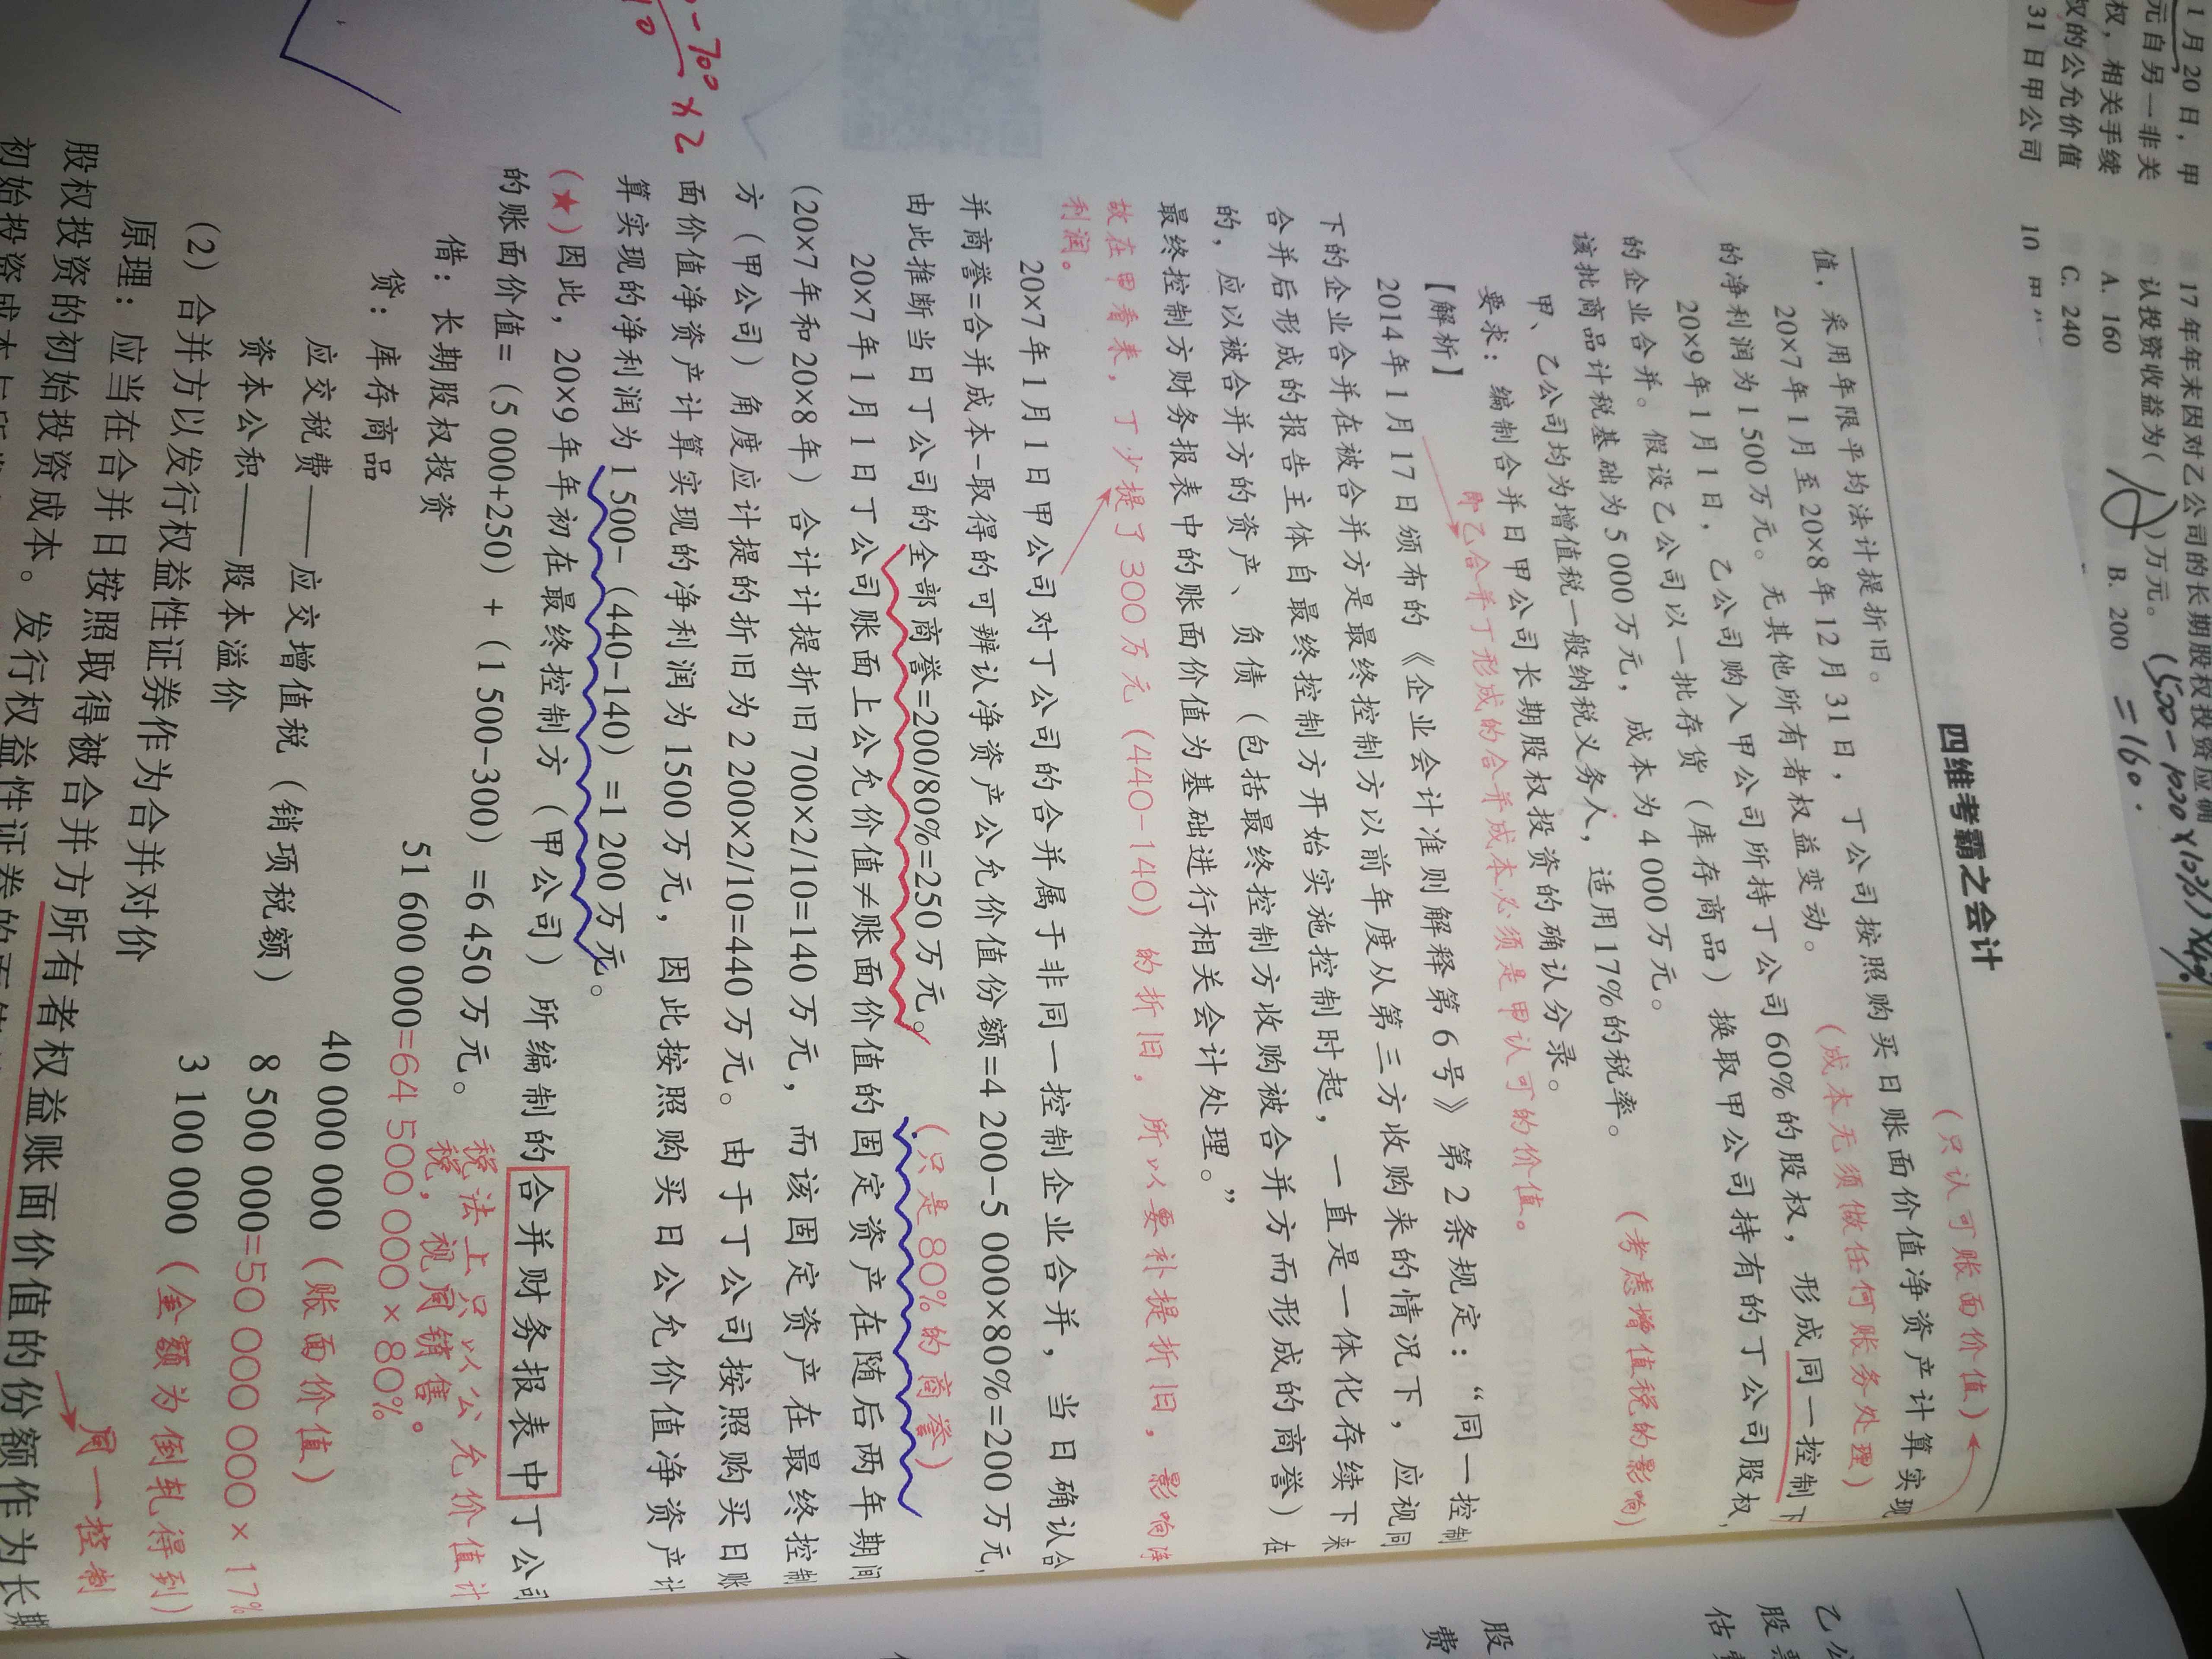 1月20日，甲
元自另一非关
权，相关手续
权的公允价值
31日甲公司
17年年末因对乙公司的长期股权投资应确
认投资收益为( )万元。
A. 160
B. 200
C. 240
10
(500-1000×10%)×40%
=160.
四维考霸之会计
(只认可账面价值)
值，采用年限平均法计提折旧。
20×7年1月至20×8年12月31日，丁公司按照购买日账面价值净资产计算实现
的净利润为1 500万元。无其他所有者权益变动。
(成本无须做任何账务处理)
20×9年1月1日，乙公司购入甲公司所持丁公司60%的股权，形成同一控制下
的企业合并。假设乙公司以一批存货（库存商品）换取甲公司持有的丁公司股权，
该批商品计税基础为5 000万元，成本为4 000万元。
(考虑增值税的影响)
甲、乙公司均为增值税一般纳税义务人，适用17%的税率。
要求：编制合并日甲公司长期股权投资的确认分录。
即乙合并丁形成的合并成本必须是甲认可的价值。
【解析】
2014年1月17日颁布的《企业会计准则解释第6号》第2条规定：“同一控制
下的企业合并在被合并方是最终控制方以前年度从第三方收购来的情况下，应视同
合并后形成的报告主体自最终控制方开始实施控制时起，一直是一体化存续下来
的，应以被合并方的资产、负债（包括最终控制方收购被合并方而形成的商誉）在
最终控制方财务报表中的账面价值为基础进行相关会计处理。”
故在甲看来，丁少提了300万元（440-140）的折旧，所以要补提折旧，影响净
利润。
20×7年1月1日甲公司对丁公司的合并属于非同一控制企业合并，当日确认合
并商誉=合并成本-取得的可辨认净资产公允价值份额=4 200-5 000×80%=200万元，
由此推断当日丁公司的全部商誉=200/80%=250万元。
(只是80%的商誉)
20×7年1月1日丁公司账面上公允价值≠账面价值的固定资产在随后两年期间
（20×7年和20×8年）合计计提折旧700×2/10=140万元，而该固定资产在最终控制
方（甲公司）角度应计提的折旧为2 200×2/10=440万元。由于丁公司按照购买日账
面价值净资产计算实现的净利润为1500万元，因此按照购买日公允价值净资产计
算实现的净利润为1 500-（440-140）=1 200万元。
-700 ×2
10
（★）因此，20×9年年初在最终控制方（甲公司）所编制的合并财务报表中丁公司
的账面价值=（5 000+250）+（1 500-300）=6 450万元。
税法上只以公允价值计
税，视同销售。
借：长期股权投资 51 600 000=64 500 000×80%
贷：库存商品 40 000 000（账面价值）
应交税费——应交增值税（销项税额） 8 500 000=50 000 000×17%
资本公积——股本溢价 3 100 000（金额为倒轧得到）
（2）合并方以发行权益性证券作为合并对价
同一控制
原理：应当在合并日按照取得被合并方所有者权益账面价值的份额作为长期
股权投资的初始投资成本。发行权益性证券的面值
乙公
股票
估
股
费